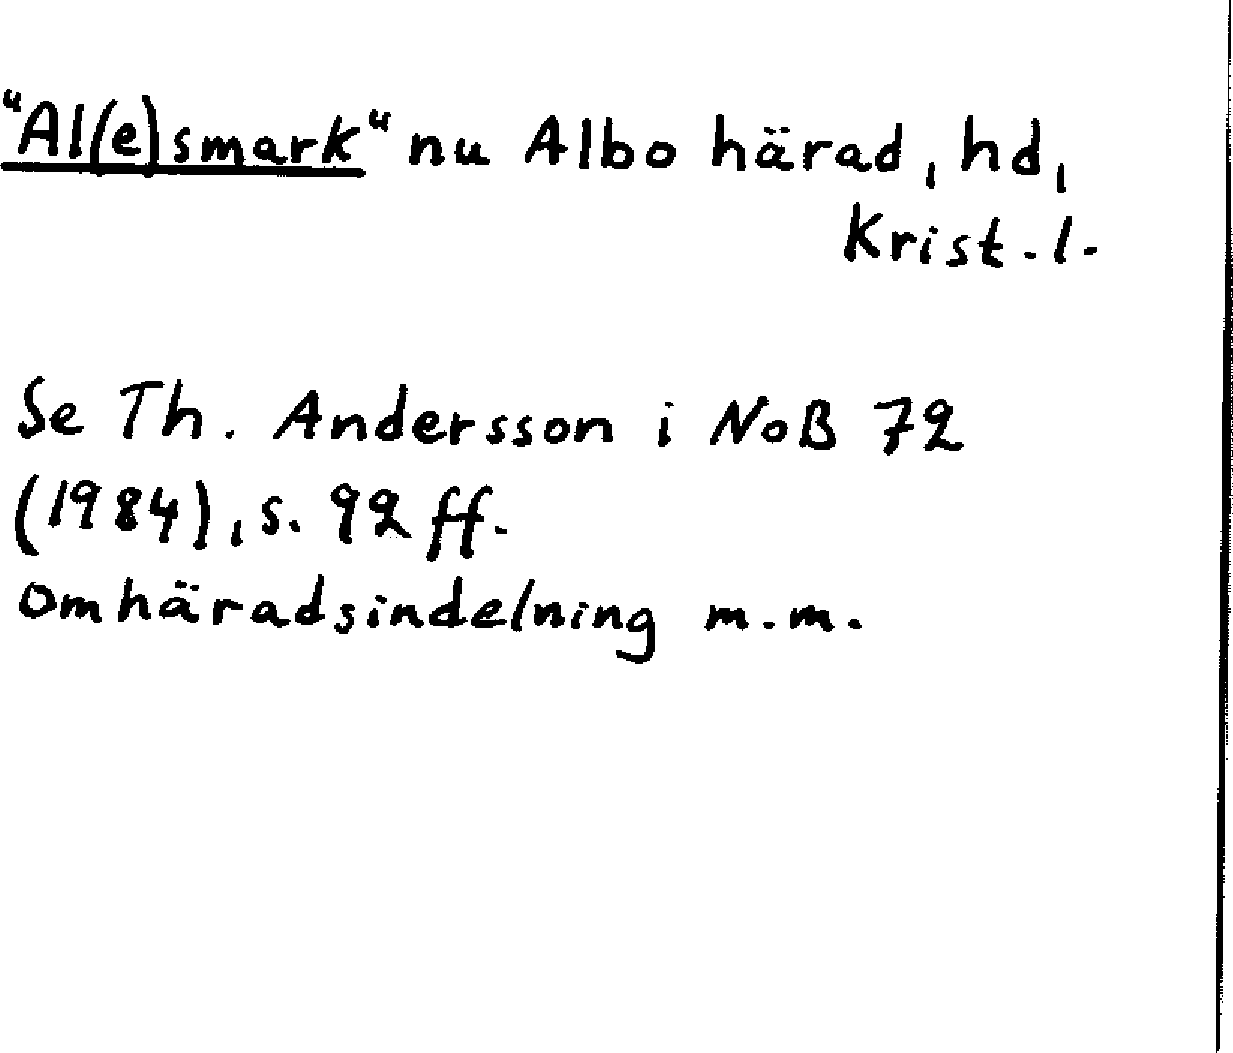 "Al(e)smark" nu Albo härad, hd,
Krist. l.
Se Th. Andersson i NoB 72
(1984), s. 92 ff.
Om häradsindelning m.m.